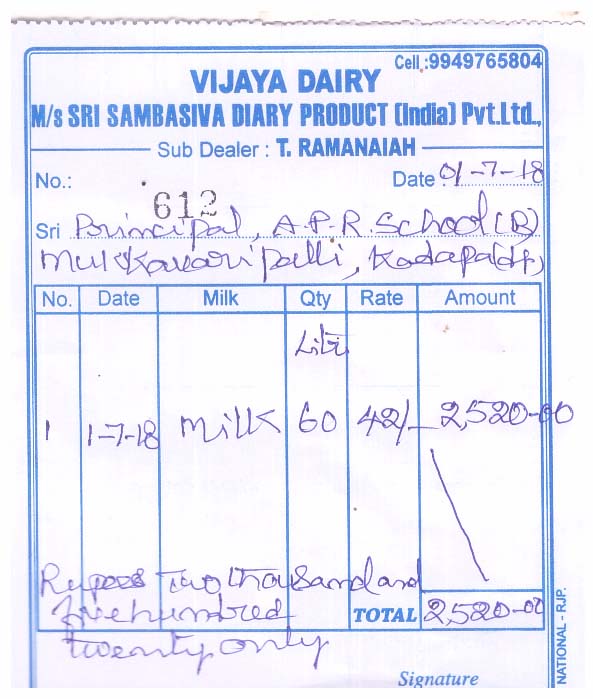 Cell.:9949765804
VIJAYA DAIRY
M/s SRI SAMBASIVA DIARY PRODUCT (India) Pvt.Ltd.,
Sub Dealer : T. RAMANAIAH
No.: 612 Date 01-7-18
Sri Principal, A.P.R. School (B)
Mukkavaripalli, Kadapa(dt)
No. Date Milk Qty Rate Amount
Litr
1 1-7-18 Milk 60 42/- 2,520-00
Rupees Two thousand and
five hundred TOTAL 2,520-00
twenty only
Signature
NATIONAL - RJP.